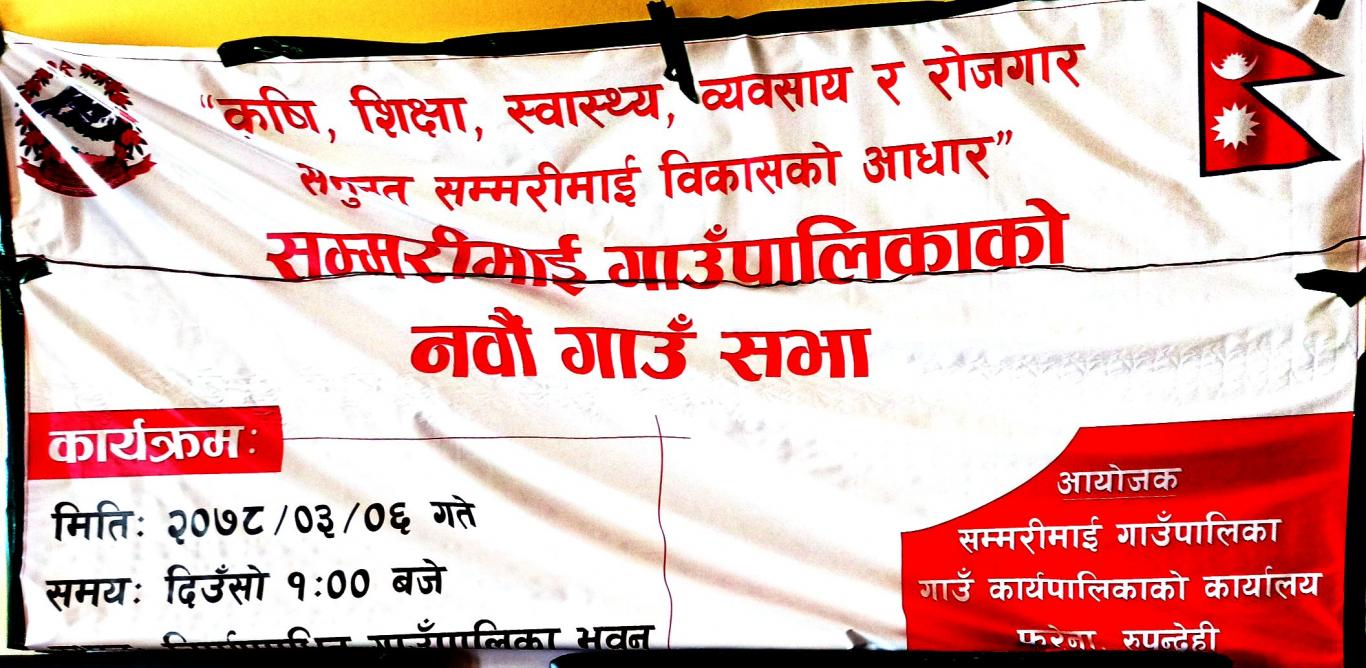 “कृषि, शिक्षा, स्वास्थ्य, व्यवसाय र रोजगार
सम्मरीमाई विकासको आधार”
सम्मरीमाई गाउँपालिकाको
नवौं गाउँ सभा
कार्यक्रमः
मितिः २०७८/०३/०६ गते
समयः दिउँसो १:०० बजे
गाउँपालिका भवन
आयोजक
सम्मरीमाई गाउँपालिका
गाउँ कार्यपालिकाको कार्यालय
फरेना, रुपन्देही